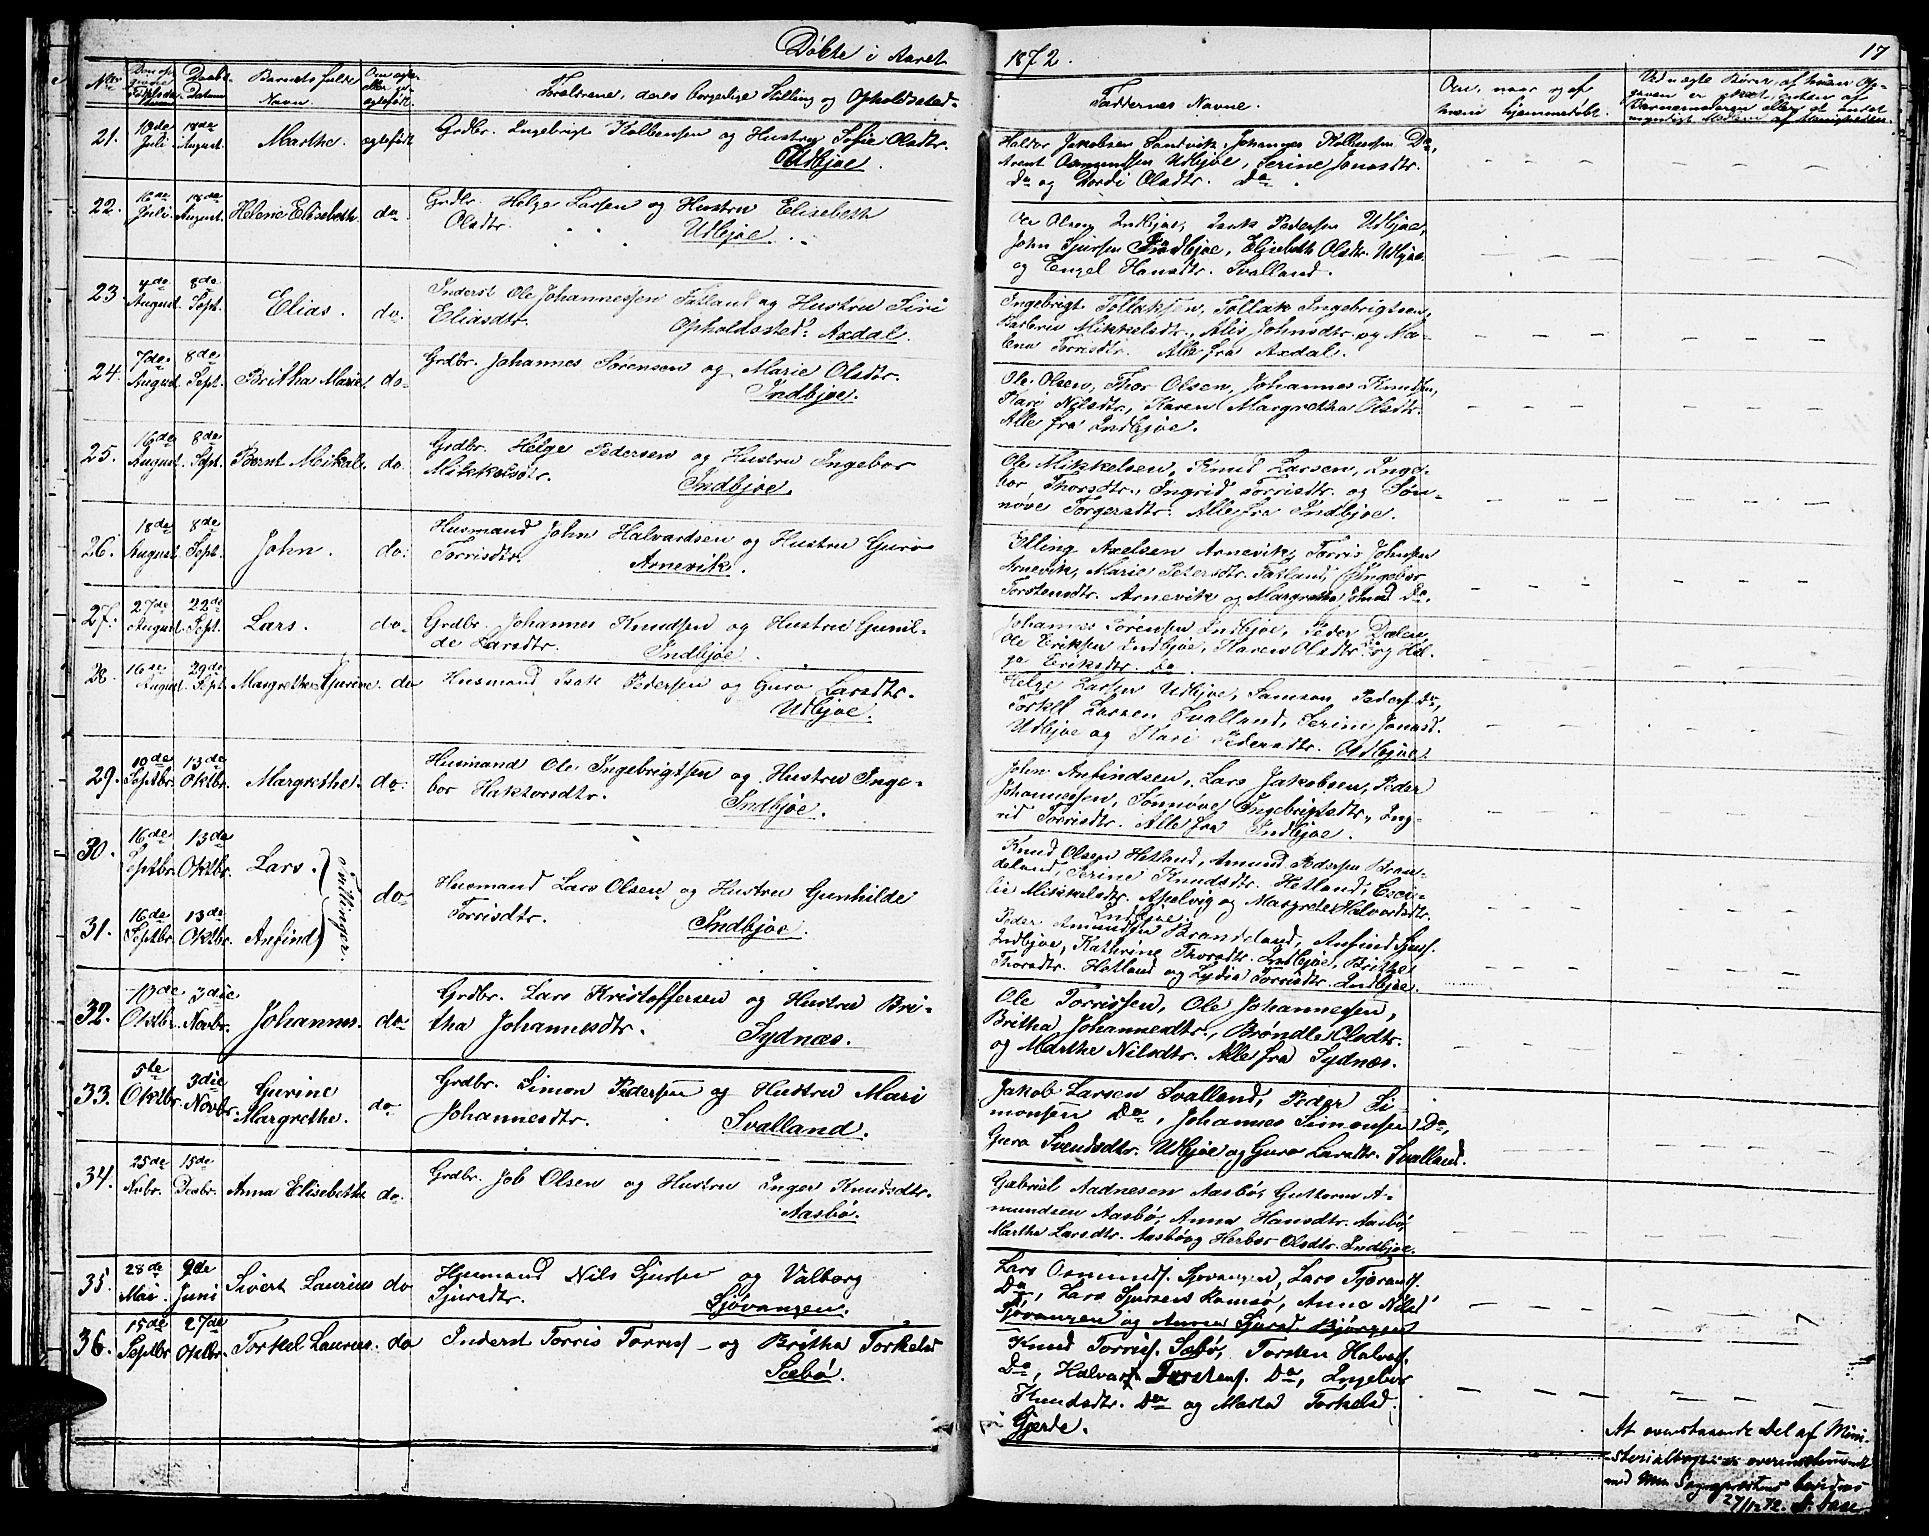 Døbte i Aaret
1872.
17
No
Daabs Datum
Barnets fulde Navn.
Om ægte eller uægtefødt.
Forældrene, deres borgerlige Stilling og Opholdssted.
Faddernes Navne.
Om, naar og af hvem hjemmedøbt.
21. 19de Juli 18de August. Marthe. ægtefødt
Grdbr. Ingebrigt Kolbensen og Hustru Sofie Olsdtr.
Udbjoe.
Haldor Jakobsen Sandvik, Johannes Kolbensen Do,
Arent Osmundsen Udbjoe, Serine Jonasdtr.
Do og Dordi Olsdtr. Do.
22. 16de Juli 18de August. Helene Elisebeth. do.
Grdbr. Helge Larsen og Hustru Elisebeth
Olsdtr. Udbjoe.
Ole Olsen Indbjoe, Isak Pedersen Udbjoe,
John Sjursen Indbjoe, Elisebeth Olsdtr. Udbjoe
og Engel Hansdtr. Svalland.
23. 4de August 8de Sept. Elias. do.
Inderst Ole Johannessen Fatland og Hustru Siri
Eliasdtr. Opholdssted: Axdal.
Ingebrigt Tollaksen, Tollak Ingebrigtsen,
Barbru Mikkelsdtr., Alis Johnsdtr. og Ma-
lene Torrisdtr. Alle fra Axdal.
24. 7de August 8de Sept. Britha Marie, do.
Grdbr. Johannes Sørensen og Marie Olsdtr.
Indbjoe.
Ole Olsen, Thor Olsen, Johannes Knudsen,
Kari Nilsdtr., Karen Margretha Olsdtr.
Alle fra Indbjoe.
25. 16de August. 8de Sept. Bernt Meikal. do.
Grdbr. Helge Pedersen og Hustru Ingebor
Mikkelsdtr. Indbjoe.
Ole Mikkelsen, Knud Larsen, Inge-
bor Thorsdtr., Ingrid Torrisdtr. og Søn-
nøve Torgersdtr. Alle fra Indbjoe.
26. 18de August. 8de Sept. John. do.
Husmand John Halvardsen og Hustru Guro
Torrisdtr. Arnevik.
Elling Axelsen Arnevik, Torris Johnsen
Arnevik, Marie Petersdtr. Fatland, Ingebor
Torstensdtr. Arnevik og Margretha Johnsd. Do.
27. 27de August 22de Sept. Lars. do.
Grdbr. Johannes Knudsen og Hustru Gunil-
de Larsdtr. Indbjoe.
Johannes Sørensen Indbjoe, Peder Dalen,
Ole Eriksen Indbjoe, Karen Olsdtr. Do og Hel-
ga Eriksdtr. Do
28. 16de August 29de Sept. Margrethe Sjurine. do
Husmand Isak Pedersen og Guro Larsdtr.
Udbjoe.
Helge Larsen Udbjoe, Samson Peders. Do,
Torkel Larsen Svalland, Serine Jonasd.
Udbjoe og Kari Pedersdtr. Udbjoe.
29. 10de Septbr. 13de Oktbr. Margrethe. do.
Husmand Ole Ingebrigtsen og Hustru Inge-
bor Haktorsdtr. Indbjoe.
John Anfindsen, Lars Jakobsen, Peder
Johannessen, Sønnøve Ingebrigtsdtr., Ing-
rid Torrisdtr. Alle fra Indbjoe.
30. 16de Septbr. 13de Oktbr. Lars.
Tvillinger.
do.
Husmand Lars Olsen og Hustru Gunhilde
Torrisdtr. Indbjoe.
Knud Olsen Hetland, Amund Pedersen Bran-
deland, Serine Knudsdtr. Hetland, Ceci-
lie Mikkelsdtr. Apelvig og Margrete Halvardsdtr.
Indbjoe.
31. 16de Septbr. 13de Oktbr. Anfind
Peder Amundsen Brandeland, Anfind Sjurs.
Indbjoe, Kathrine Thorsdtr. Indbjoe, Brithe
Thorsdtr. Hetland og Lydia Torrisdtr. Indbjoe.
32. Oktbr. 3die Novbr. Johannes. do.
Grdbr. Lars Kristoffersen og Hustru Bri-
tha Johannesdtr. Sydnæs.
Ole Torrissen, Ole Johannessen,
Britha Johannesdtr., Brøndle Olsdtr.
og Marthe Nilsdtr. Alle fra Sydnæs.
33. 5te Oktbr. 3die Novbr. Gurine Margrethe. do.
Grdbr. Simon Pedersen og Hustru Mari
Johannesdtr. Svalland.
Jakob Larsen Svalland, Peder Si-
monsen Do, Johannes Simonsen Do,
Guro Svendsdtr. Udbjoe og Guro Larsdtr. Svalland.
34. 25de Nvbr. 15de Decbr. Anna Elisebethe do.
Grdbr. Job Olsen og Hustru Inger Knudsdtr.
Aasbø.
Gabriel Aadnesen Aasbø, Guttorm A-
mundsen Aasbø, Anna Hansdtr. Aasbø,
Marthe Larsdtr. Aasbø og Herbor Olsdtr. Indbjoe.
35. 28de Mai 9de Juni Sivert Laurius do
Husmand Nils Sjursen og Valborg
Sjursdtr. Sjøvangen.
Lars Osmunds. Sjøvangen, Lars Tjerands.
Do, Lars Sjursens Ramsø, Anna Nilsd.
Sjøvangen og Anna Sjursd. Bjørgen
36. 15de Septbr 27de Oktbr. Torkel Laurius. do
Inderst Torris Torris. og Britha Torkelsd
Sæbø.
Knud Torris. Sæbø, Torsten Halvas.
Do, Halvar Torstens. Do, Ingebor
Knudsdtr. Do og Marta Torkelsd.
Gjerde.
At ovenstaaende Del af Mini-
sterialbogen er overensstemmende
med Sognepræstens bevidnes
27/12 72.